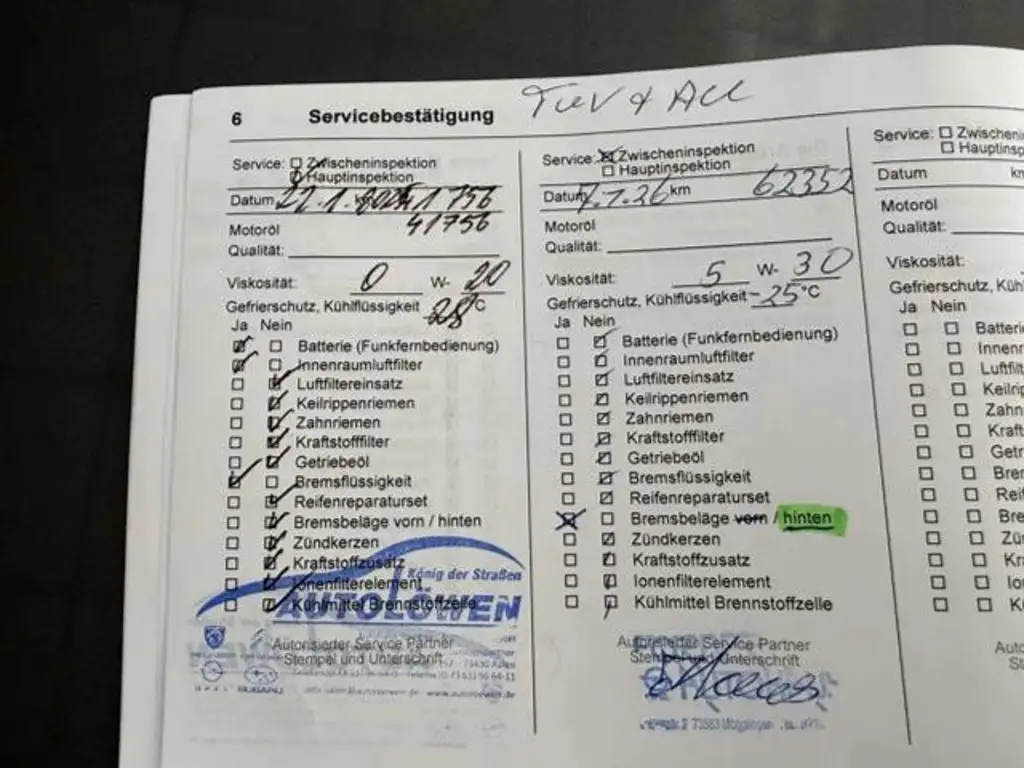 6 Servicebestätigung TÜV + AU
Service: Zwischeninspektion
Hauptinspektion
Datum 22.1. km 41 756
41756
Motoröl
Qualität:
Viskosität: 0 W- 20
Gefrierschutz, Kühlflüssigkeit 28 °C
Ja Nein
Batterie (Funkfernbedienung)
Innenraumluftfilter
Luftfiltereinsatz
Keilrippenriemen
Zahnriemen
Kraftstofffilter
Getriebeöl
Bremsflüssigkeit
Reifenreparaturset
Bremsbeläge vorn / hinten
Zündkerzen
Kraftstoffzusatz
Ionenfilterelement
Kühlmittel Brennstoffzelle
König der Straßen
AUTOLÖWEN
Autorisierter Service Partner
Stempel und Unterschrift
SUBARU
www.autoloewen.de
Service: Zwischeninspektion
Hauptinspektion
Datum 7.26 km 62352
Motoröl
Qualität:
Viskosität: 5 W- 30
Gefrierschutz, Kühlflüssigkeit -25 °C
Ja Nein
Batterie (Funkfernbedienung)
Innenraumluftfilter
Luftfiltereinsatz
Keilrippenriemen
Zahnriemen
Kraftstofffilter
Getriebeöl
Bremsflüssigkeit
Reifenreparaturset
Bremsbeläge vorn / hinten
Zündkerzen
Kraftstoffzusatz
Ionenfilterelement
Kühlmittel Brennstoffzelle
Autorisierter Service Partner
Stempel und Unterschrift
Service: Zwischenin
Hauptinsp
Datum km
Motoröl
Qualität:
Viskosität:
Gefrierschutz, Küh
Ja Nein
Batteri
Innenr
Luftfil
Keilrip
Zahn
Kraft
Getr
Bre
Rei
Bre
Zü
Kr
Io
K
Auto
St